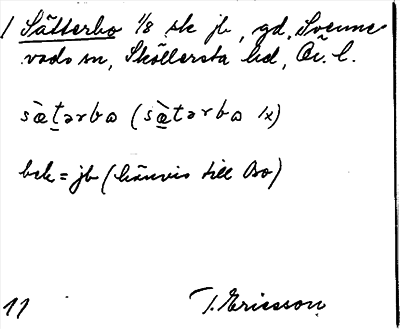 1 Sätterbo 1/8 sk jb, gd, Svenne-
vads sn, Sköllersta hd, Ör. l.
sæ̀tərbω (sæ̀tərbω 1x)
bsk = jb (hänvis till Bo)
11 T. Ericsson